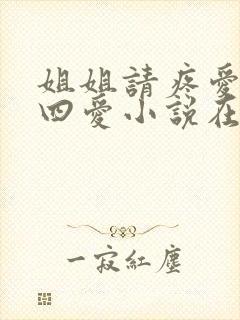 姐姐請疼愛
四愛小說在
一寂紅塵